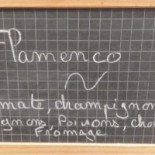 Flamenco
~
mate, champignon
gnons, Poivrons, cho
Fromage